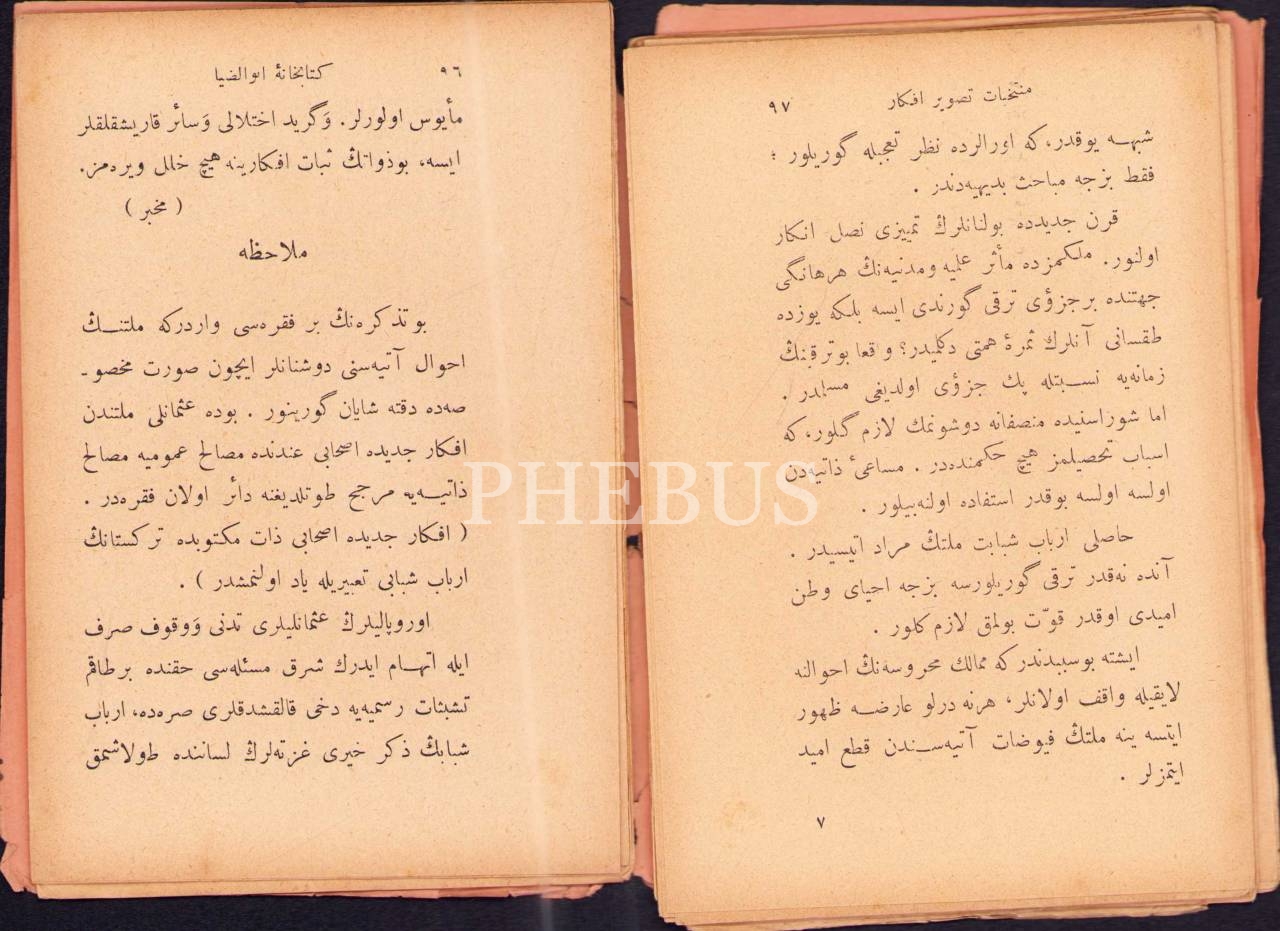 ٩٦
كتابخانۀ ابوالضيا
مأیوس اولورلر. وَگرید اختلالی وَسائر قاریشقلقلر
ایسه، بوذواتڭ ثبات افكارینه هیچ خلل ویره‌مز.
( مخبر )
ملاحظه
بو تذكره‌نڭ بر فقره‌سی واردركه ملتنـڭ
احوال آتیه‌سنی دوشنانلر ایچون صورت مخصو ـ
صه‌ده دقته شایان گورینور . بوده عثمانلی ملتندن
افكار جدیده اصحابی عندنده مصالح عمومیه مصالح
ذاتیــه‌یه مرجح طوتلدیغنه دائر اولان فقره‌در .
( افكار جدیده اصحابی ذات مكتوبده تركستانڭ
ارباب شبابی تعبیریله یاد اولنمشدر ) .
اوروپالیلرڭ عثمانلیلری تدنی وَوقوف صرف
ایله اتهــام ایدرك شرق مسئله‌سی حقنده برطاقم
تشبثات رسمیه‌یه دخی قالقشدقلری صره‌ده، ارباب
شبابڭ ذكر خیری غزته‌لرڭ لساننده طولاشمق
منتخبات تصویر افكار
٩٧
شبهــه یوقدر، كه اورالرده نظر تعجبله گوریلور ؛
فقط بزجه مباحث بدیهیه‌دندر .
قرن جدیدده بولنانلرڭ تمییزی نصل انكار
اولنور. ملكمزده مأثر علمیه ومدنیه‌نڭ هرهانگی
جهتنده برجزؤی ترقی گورندی ایسه بلكه یوزده
طقسانی آنلرڭ ثمرۀ همتی دكلیدر؟ واقعا بوترقینڭ
زمانه‌یه نســبتله پك جزؤی اولدیغی مسلمدر .
اما شوراسنیده منصفانه دوشونمك لازم گلور، كه
اسباب تحصیلمز هیچ حكمنده‌در . مساعیٔ ذاتیه‌دن
اولسه اولسه بوقدر استفاده اولنه‌بیلور .
حاصلی ارباب شبابت ملتڭ مراد اتیسیدر .
آنده نه‌قدر ترقی گوریلورسه بزجه احیای وطن
امیدی اوقدر قوّت بولمق لازم كلور .
ایشته بوسببدندر كه ممالك محروسه‌نڭ احوالنه
لایقیله واقف اولانلر، هرنه درلو عارضــه ظهور
ایتسه ینه ملتڭ فیوضات آتیه‌ســندن قطع امید
ایتمزلر .
٧
PHEBUS